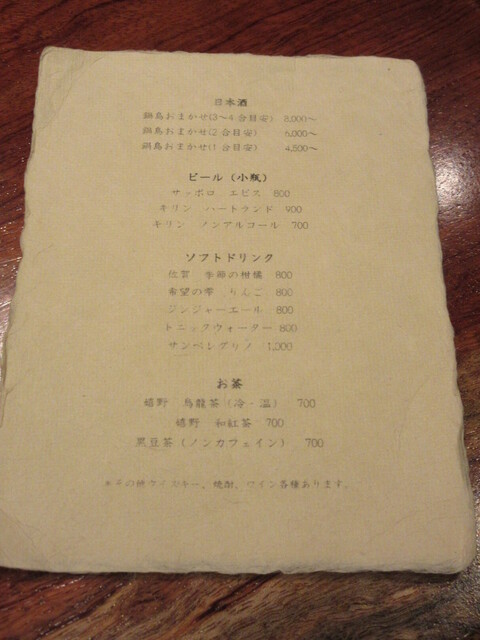 日本酒
鍋島おまかせ(3〜4合目安) 8,000〜
鍋島おまかせ(2合目安) 6,000〜
鍋島おまかせ(1合目安) 4,500〜
ビール（小瓶）
サッポロ エビス 800
キリン ハートランド 900
キリン ノンアルコール 700
ソフトドリンク
佐賀 季節の柑橘 800
希望の雫 りんご 800
ジンジャーエール 800
トニックウォーター 800
サンペレグリノ 1,000
お茶
嬉野 烏龍茶（冷・温） 700
嬉野 和紅茶 700
黒豆茶（ノンカフェイン） 700
※その他ウイスキー、焼酎、ワイン各種あります。